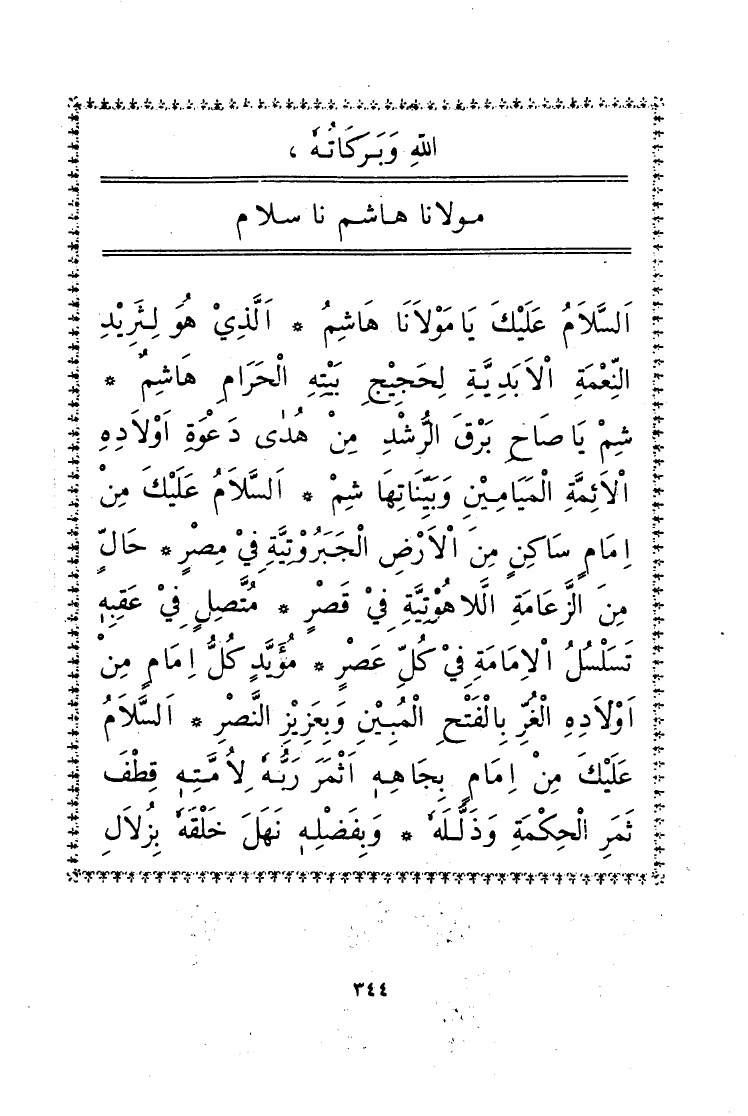 اللهِ وَبَرَكَاتُهُ ،
مولانا هاشم نا سلام
اَلسَّلَامُ عَلَيْكَ يَا مَوْلَانَا هَاشِمُ * اَلَّذِيْ هُوَ لِثَرِيْدِ
النِّعْمَةِ الْاَبَدِيَّةِ لِحَجِيْجِ بَيْتِهِ الْحَرَامِ هَاشِمٌ *
شِمْ يَا صَاحِ بَرْقَ الرُّشْدِ مِنْ هُدٰى دَعْوَةِ اَوْلَادِهِ
الْاَئِمَّةِ الْمَيَامِيْنِ وَبَيِّنَاتِهَا شِمْ * اَلسَّلَامُ عَلَيْكَ مِنْ
اِمَامٍ سَاكِنٍ مِنَ الْاَرْضِ الْجَبَرُوْتِيَّةِ فِيْ مِصْرٍ * حَالٍّ
مِنَ الزَّعَامَةِ اللَّاهُوْتِيَّةِ فِيْ قَصْرٍ * مُتَّصِلٍ فِيْ عَقِبِهِ
تَسَلْسُلُ الْاِمَامَةِ فِيْ كُلِّ عَصْرٍ * مُؤَيَّدٍ كُلُّ اِمَامٍ مِنْ
اَوْلَادِهِ الْغُرِّ بِالْفَتْحِ الْمُبِيْنِ وَبِعَزِيْزِ النَّصْرِ * اَلسَّلَامُ
عَلَيْكَ مِنْ اِمَامٍ بِجَاهِهِ اَثْمَرَ رَبُّهُ لِاُمَّتِهِ قِطْفَ
ثَمَرِ الْحِكْمَةِ وَذَلَّلَهُ * وَبِفَضْلِهِ نَهَلَ خَلْقَهُ بِزُلَالِ
٣٤٤